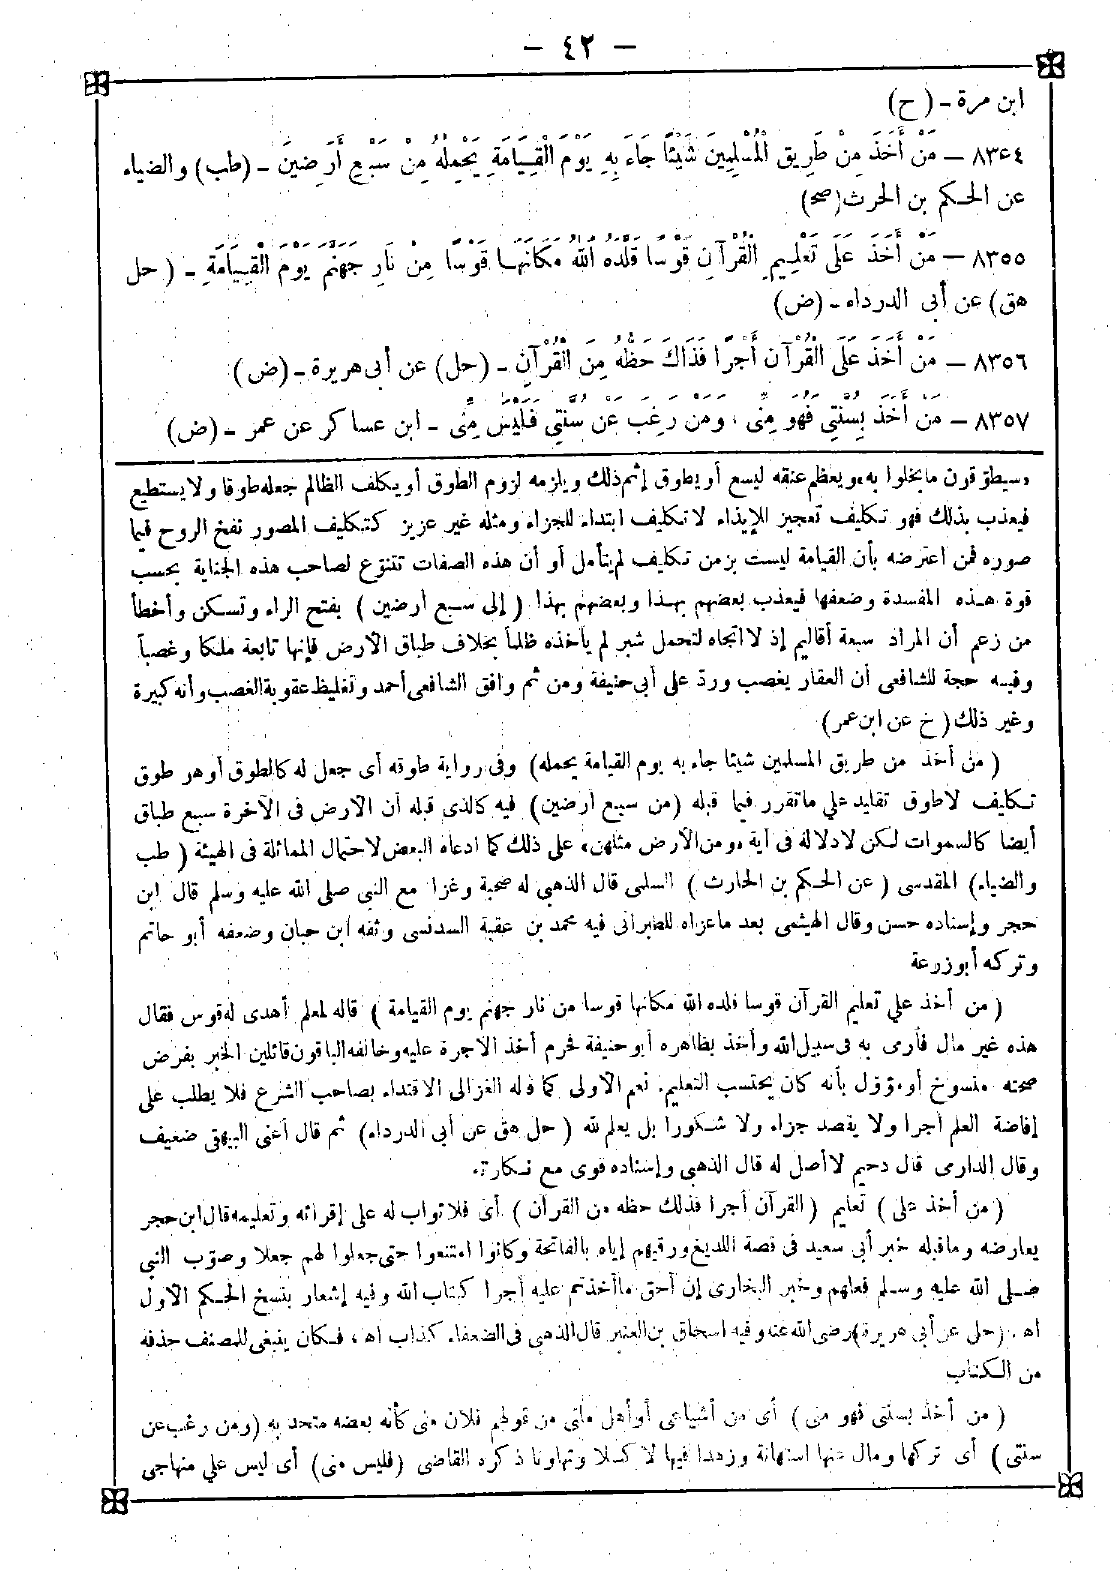 - ٤٢ -
ابن مرة - (ح)
٨٣٤٤ - مَنْ أَخَذَ مِنْ طَرِيقِ الْمُسْلِمِينَ شَيْئًا جَاءَ بِهِ يَوْمَ الْقِيَامَةِ يَحْمِلُهُ مِنْ سَبْعِ أَرَضِينَ - (طب) والضياء
عن الحكم بن الحرث (صح)
٨٣٥٥ - مَنْ أَخَذَ عَلَى تَعْلِيمِ الْقُرْآنِ قَوْسًا قَلَّدَهُ اللهُ مَكَانَهَا قَوْسًا مِنْ نَارِ جَهَنَّمَ يَوْمَ الْقِيَامَةِ - (حل
هق) عن أبى الدرداء - (ض)
٨٣٥٦ - مَنْ أَخَذَ عَلَى الْقُرْآنِ أَجْرًا فَذَاكَ حَظُّهُ مِنَ الْقُرْآنِ - (حل) عن أبى هريرة - (ض)
٨٣٥٧ - مَنْ أَخَذَ بِسُنَّتِي فَهُوَ مِنِّى، وَمَنْ رَغِبَ عَنْ سُنَّتِي فَلَيْسَ مِنِّى - ابن عساكر عن عمر - (ض)
«سيطوقون ما بخلوا به» ويعظم عنقه ليسع أو يطوق إثم ذلك ويلزمه لزوم الطوق أو يكلف الظالم جعله طوقا ولا يستطيع
فيعذب بذلك فهو تكليف تعجيز للإيذاء لا تكليف ابتداء للجزاء ومثله غير عزيز كتكليف المصور نفخ الروح فيما
صوره فمن اعترضه بأن القيامة ليست بزمن تكليف لم يتأمل أو أن هذه الصفات تتنوع لصاحب هذه الجناية بحسب
قوة هذه المفسدة وضعفها فيعذب بعضهم بهذا وبعضهم بهذا (إلى سبع أرضين) بفتح الراء وتسكن وأخطأ
من زعم أن المراد سبعة أقاليم إذ لا اتجاه لتحمل شبر لم يأخذه ظلماً بخلاف طباق الأرض فإنها تابعة ملكا وغصباً
وفيه حجة للشافعى أن العقار يغصب وردّ على أبى حنيفة ومن ثم وافق الشافعى أحمد وتغليظ عقوبة الغصب وأنه كبيرة
وغير ذلك (خ عن ابن عمر)
(من أخذ من طريق المسلمين شيئا جاء به يوم القيامة يحمله) وفى رواية طوقه أى جعل له كالطوق أو هو طوق
تكليف لا طوق تقليد على ما تقرر فيما قبله (من سبع أرضين) فيه كالذى قبله أن الأرض فى الآخرة سبع طباق
أيضا كالسموات لكن لا دلالة فى آية «ومن الأرض مثلهن» على ذلك كما ادعاه البعض لاحتمال المماثلة فى الهيئة (طب
والضياء) المقدسى (عن الحكم بن الحارث) السلمى قال الذهبى له صحبة وغزا مع النبى صلى الله عليه وسلم قال ابن
حجر وإسناده حسن وقال الهيثمى بعد ما عزاه للطبرانى فيه محمد بن عقبة السدنسى وثقه ابن حبان وضعفه أبو حاتم
وتركه أبو زرعة
(من أخذ على تعليم القرآن قوسا قلده الله مكانها قوسا من نار جهنم يوم القيامة) قاله لمعلم أهدى له قوس فقال
هذه غير مال فأرى به فى سبيل الله وأخذ بظاهره أبو حنيفة فحرم أخذ الأجرة عليه وخالفه الباقون قائلين الخبر بفرض
صحته منسوخ أو مؤول بأنه كان يحتسب التعليم. نعم الأولى كما قاله الغزالى الاقتداء بصاحب الشرع فلا يطلب على
إفاضة العلم أجرا ولا يقصد جزاء ولا شكورا بل يعلم لله (حل هق عن أبى الدرداء) ثم قال أعنى البيهقى ضعيف
وقال الدارى قال دحيم لا أصل له قال الذهبى وإسناده قوى مع نكارته.
(من أخذ على) تعليم (القرآن أجرا فذلك حظه من القرآن) أى فلا ثواب له على إقرائه وتعليمه قال ابن حجر
يعارضه وما قبله خبر أبى سعيد فى قصة اللديغ ورقيهم إياه بالفاتحة وكانوا امتنعوا حتى جعلوا لهم جعلا وصوّب النبى
صلى الله عليه وسلم فعلهم وخبر البخارى إن أحق ما أخذتم عليه أجرا كتاب الله وفيه إشعار بنسخ الحكم الأول
اه. (حل عن أبى هريرة) رضى الله عنه وفيه اسحاق بن العنبر قال الذهبى فى الضعفاء كذاب اه، فكان ينبغى للمصنف حذفه
من الكتاب
(من أخذ بسنتى فهو منى) أى من أشياعى أو أهل ملتى من قولهم فلان منى كأنه بعضه متحد به (ومن رغب عن
سنتى) أى تركها ومال عنها استهانة وزهدا فيها لا كسلا وتهاونا ذكره القاضى (فليس منى) أى ليس على منهاجى